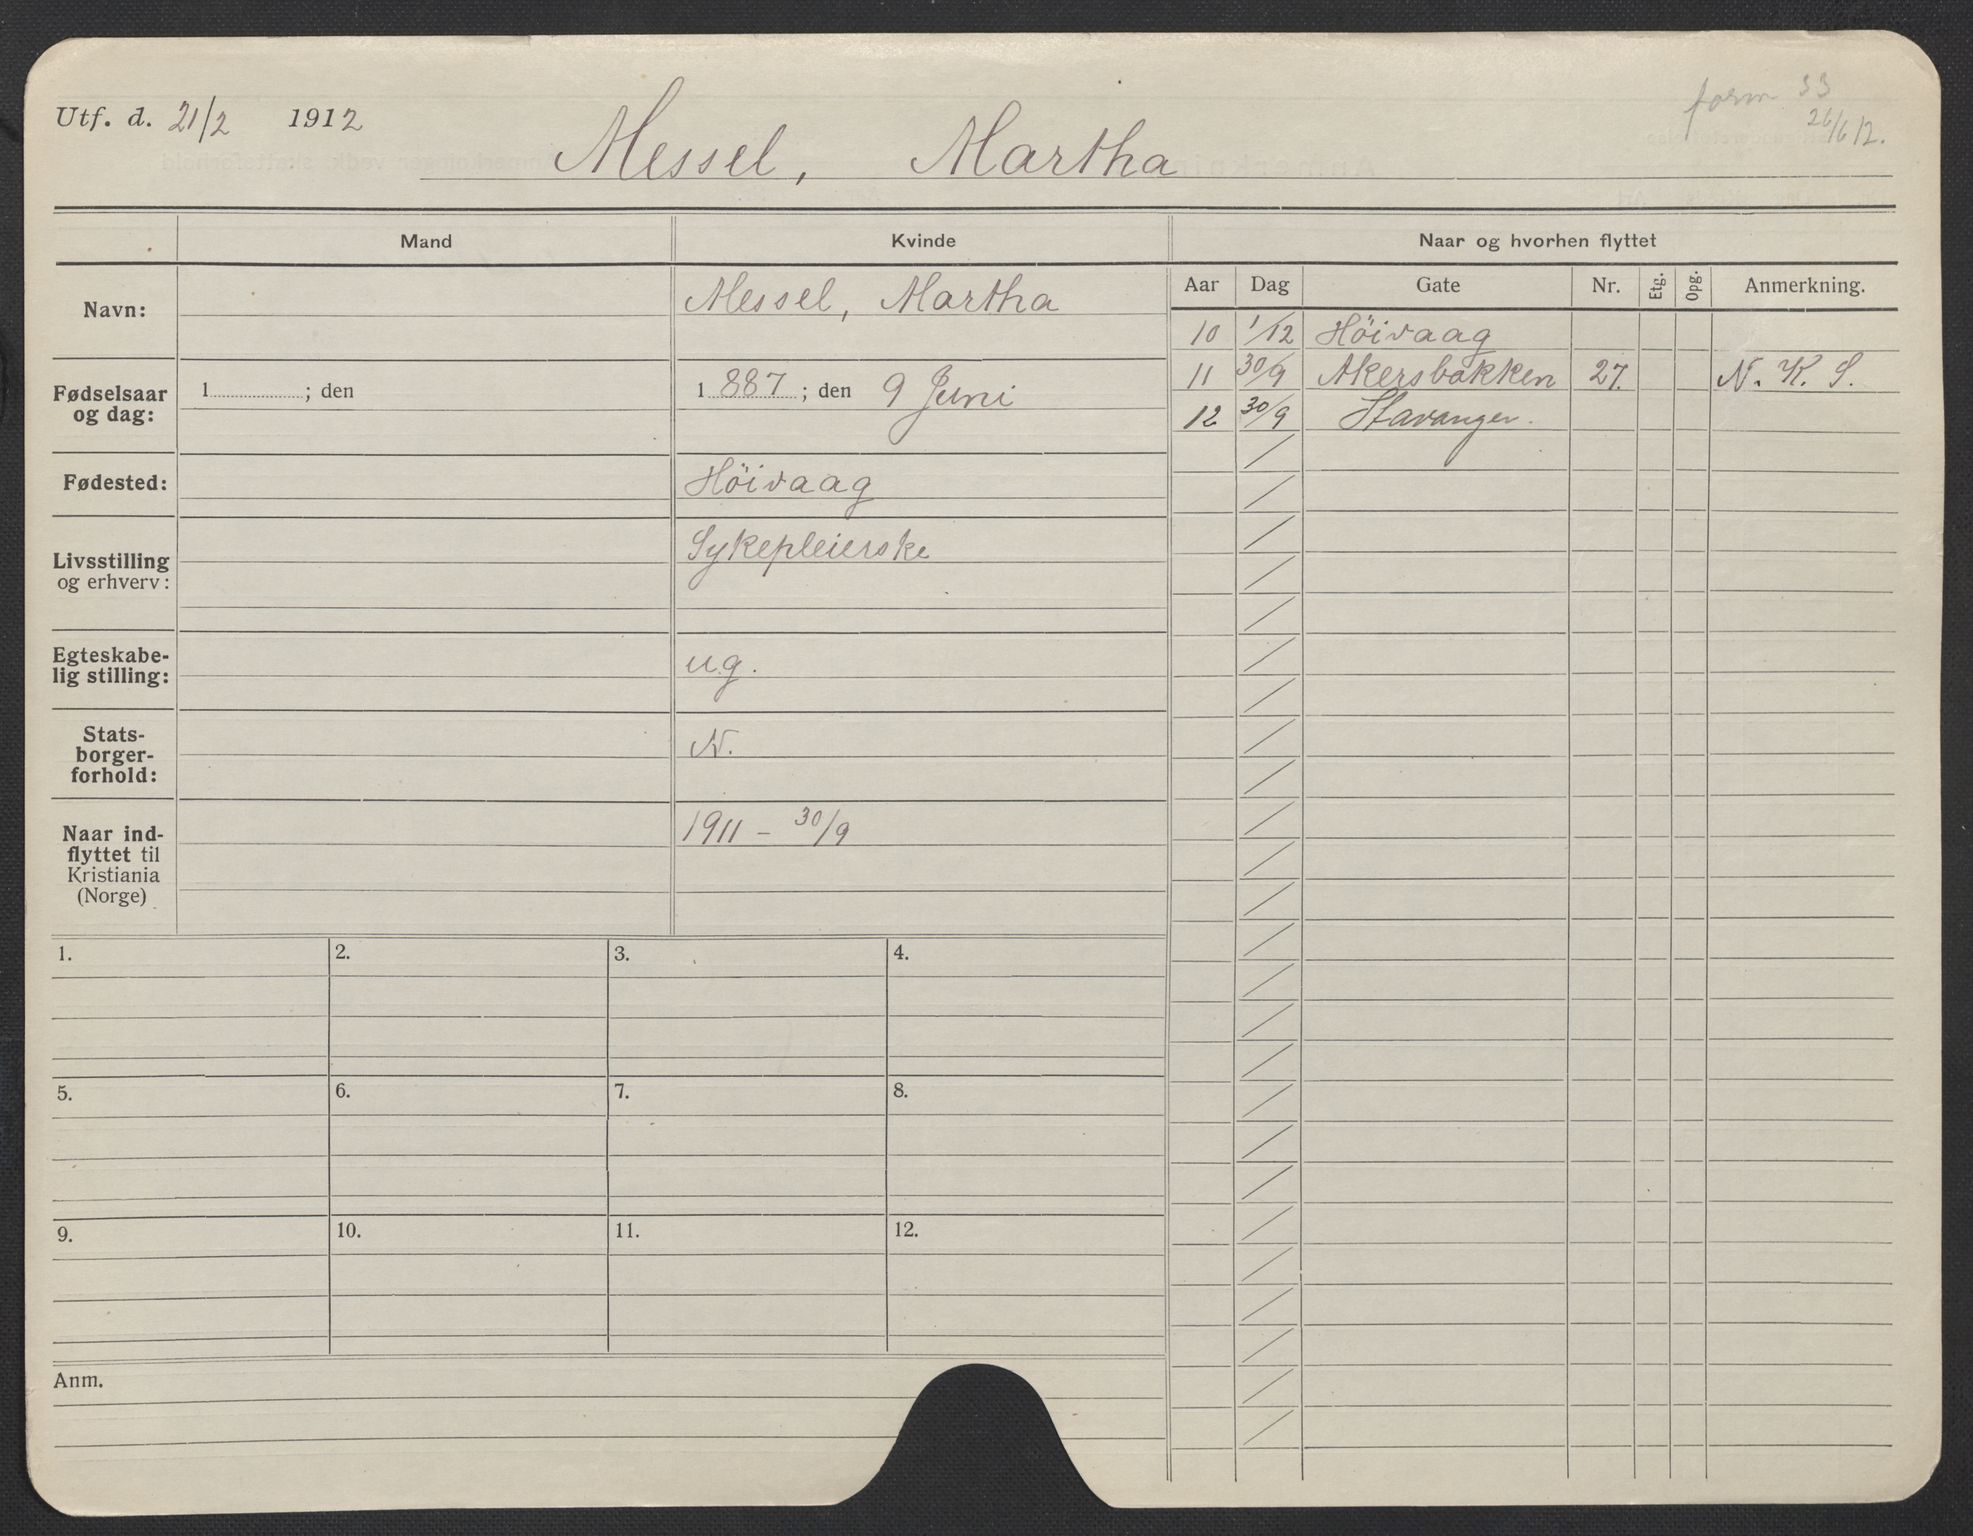 Utf. d. 21/2 1912
Messel, Martha
form 33
26/6 12.
Mand
Kvinde
Naar og hvorhen flyttet
Aar Dag Gate Nr. Etg. Opg. Anmerkning.
Navn:
Messel, Martha
10 1/12 Höivaag
11 30/9 Akersbakken 27. N. K. S.
12 30/9 Stavanger.
Fødselsaar
og dag:
1 ; den
1 887 ; den 9 Juni
Fødested:
Höivaag
Livsstilling
og erhverv:
Sykepleierske
Egteskabe-
lig stilling:
ug.
Stats-
borger-
forhold:
N.
Naar ind-
flyttet til
Kristiania
(Norge)
1911 – 30/9
1. 2. 3. 4.
5. 6. 7. 8.
9. 10. 11. 12.
Anm.